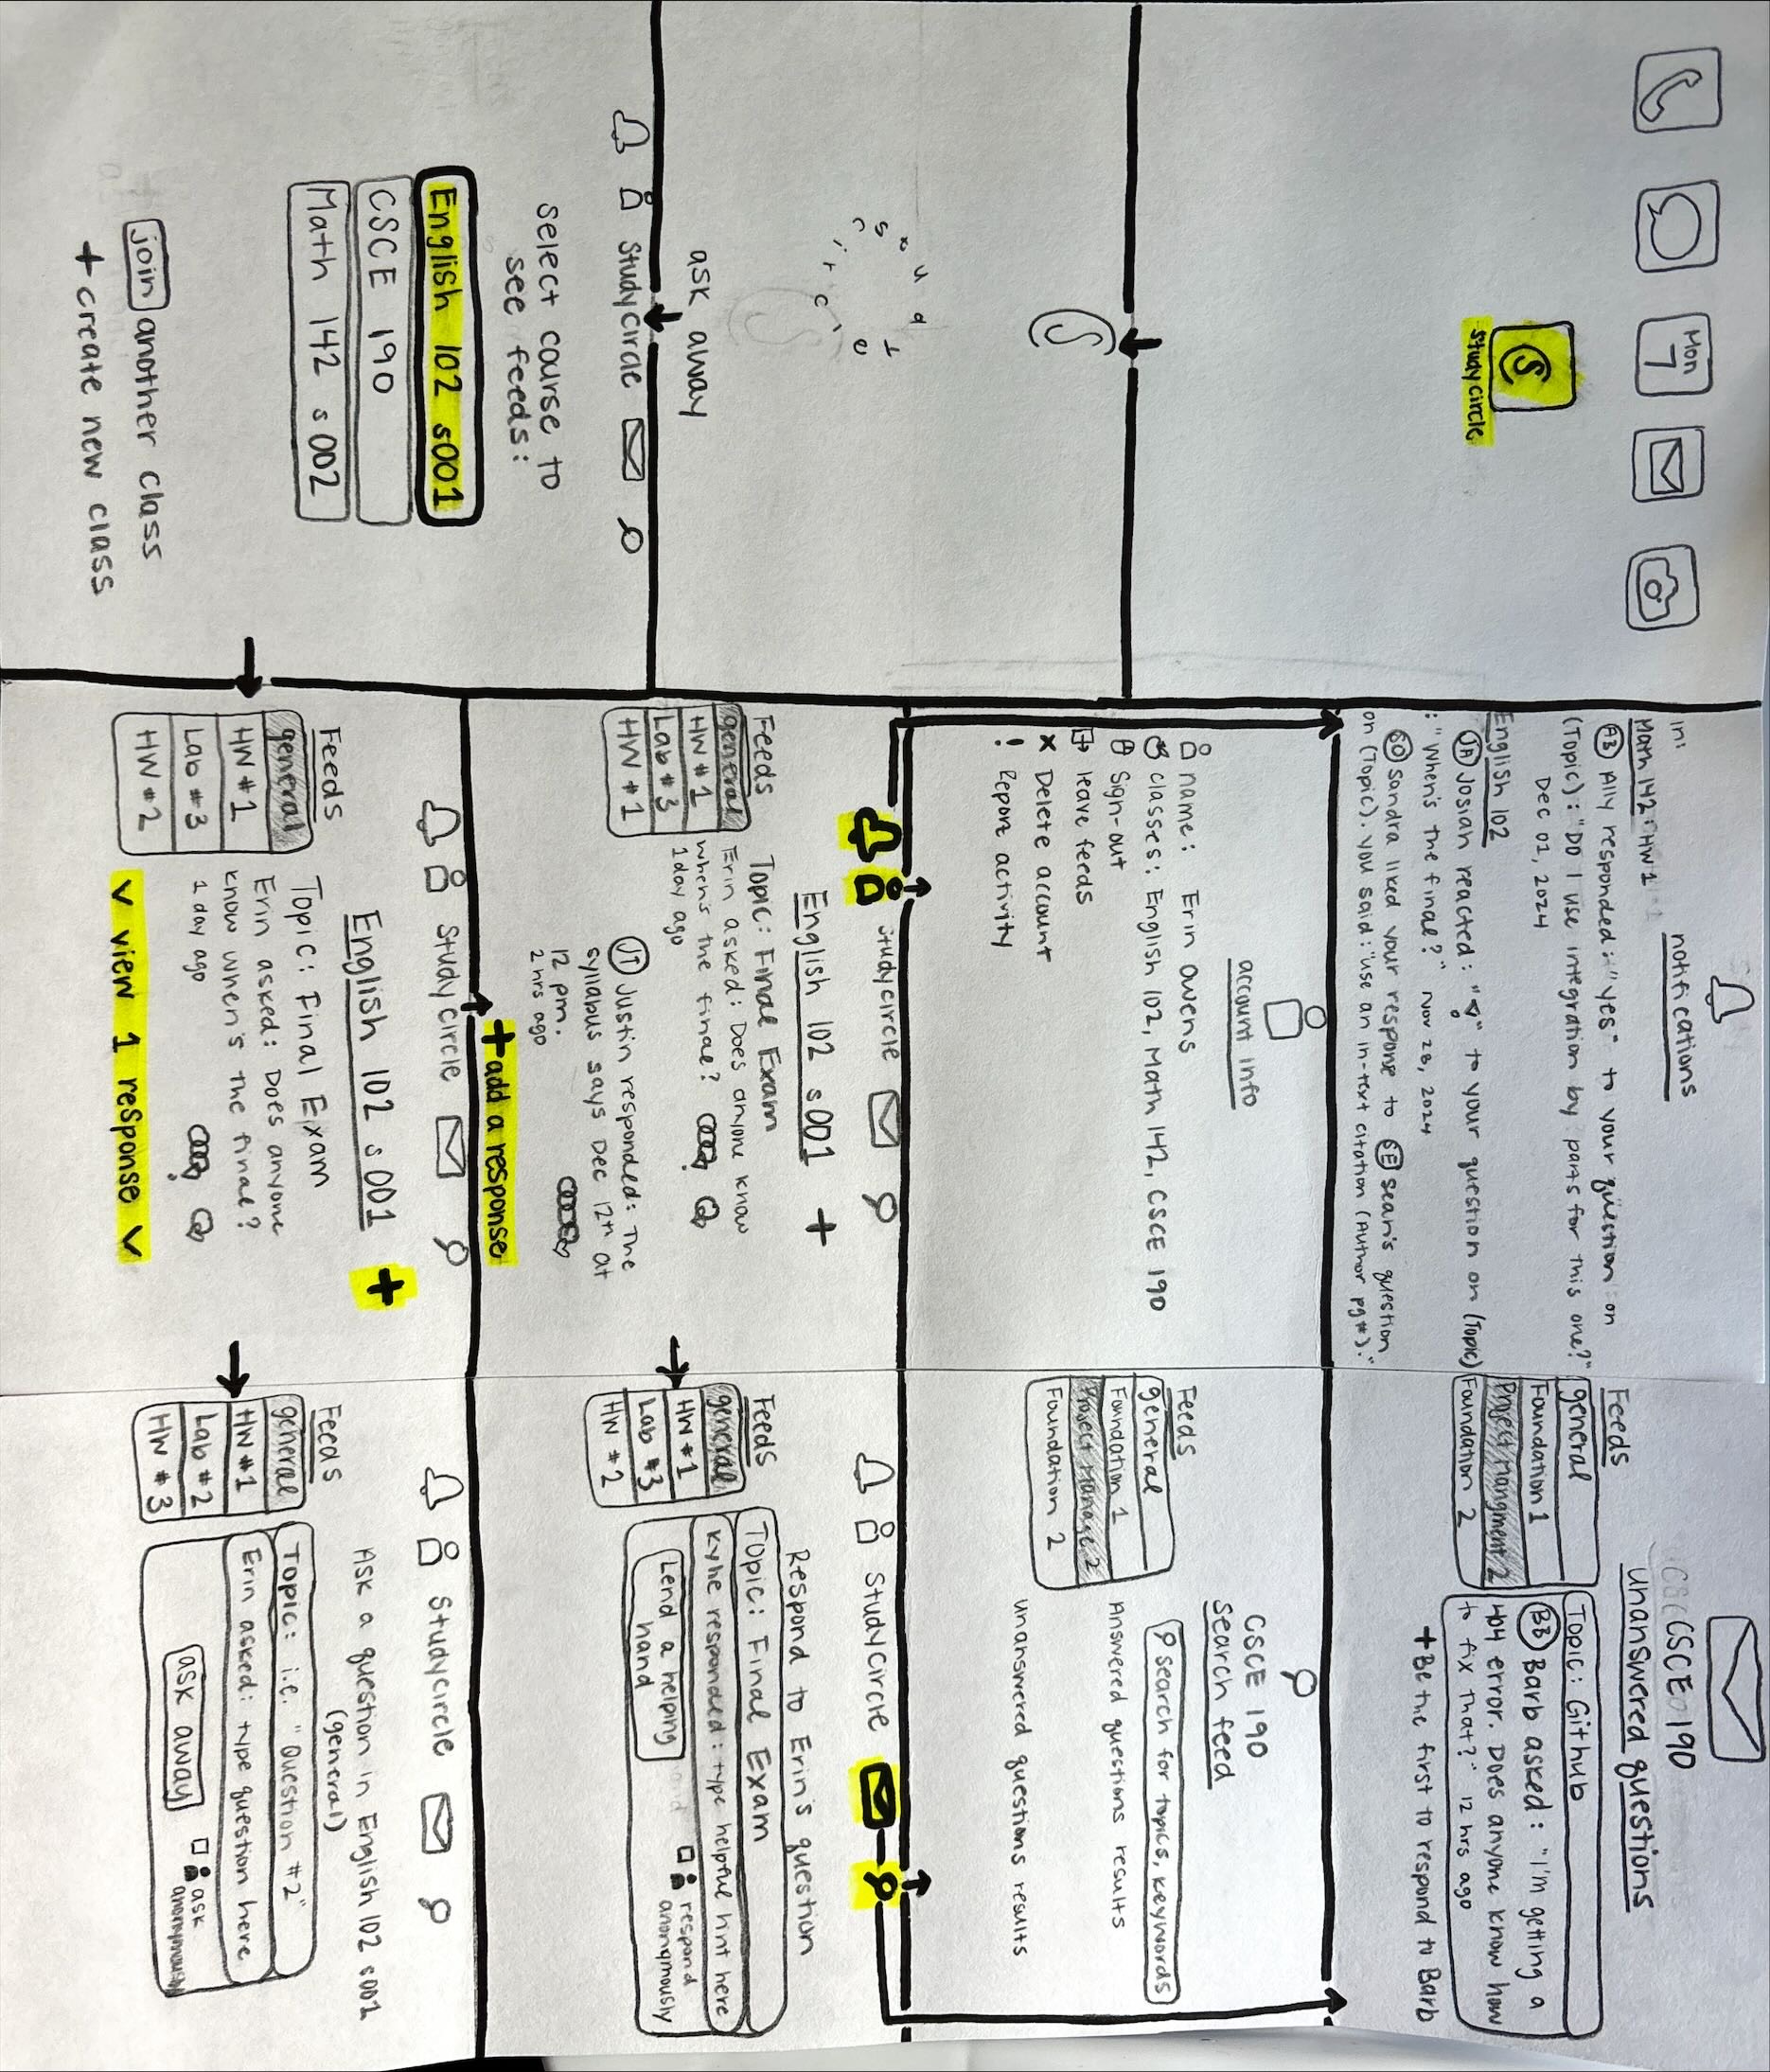 Mon
7
S
studycircle
S
studycircle
ask away
studycircle
select course to
see feeds:
English 102 s001
CSCE 190
Math 142 s002
join another class
+ create new class
notifications
in:
Math 142: HW1
AB Ally responded: "yes" to your question on
(Topic): "Do I use integration by parts for this one?"
Dec 02, 2024
English 102
JA Josiah reacted: " " to your question on (Topic)
: "When's the final?" Nov 28, 2024
SO Sandra liked your response to SE Sean's question
on (Topic). You said: "use an in-text citation (Author pg#)."
account info
name: Erin Owens
classes: English 102, Math 142, CSCE 190
Sign-out
leave feeds
x Delete account
! Report activity
studycircle
English 102 s001 +
Feeds
general
HW #1
Lab #3
HW #1
Topic: Final Exam
Erin asked: Does anyone know
when's the final?
1 day ago
JT Justin responded: The
syllabus says Dec 12th at
12 pm.
2 hrs ago
+ add a response
studycircle
English 102 s001 +
Feeds
general
HW #1
Lab #3
HW #2
Topic: Final Exam
Erin asked: Does anyone
know when's the final?
1 day ago
v view 1 response v
CSCE 190
unanswered questions
Feeds
general
Foundation 1
Project Mangment 2
Foundation 2
Topic: Github
BB Barb asked: "I'm getting a
404 error. Does anyone know how
to fix that?" 12 hrs ago
+ Be the first to respond to Barb
CSCE 190
search feed
Feeds
general
Foundation 1
Project Manage 2
Foundation 2
search for topics, keywords
Answered questions results
unanswered questions results
studycircle
Respond to Erin's question
Feeds
general
HW #1
Lab #3
HW #2
Topic: Final Exam
Kylie responded: type helpful hint here
Lend a helping
hand
respond
anonymously
studycircle
Ask a question in English 102 s001
(general)
Feeds
general
HW #1
Lab #2
HW #3
Topic: i.e. "Question #2"
Erin asked: type question here
ask away
ask
anonymously